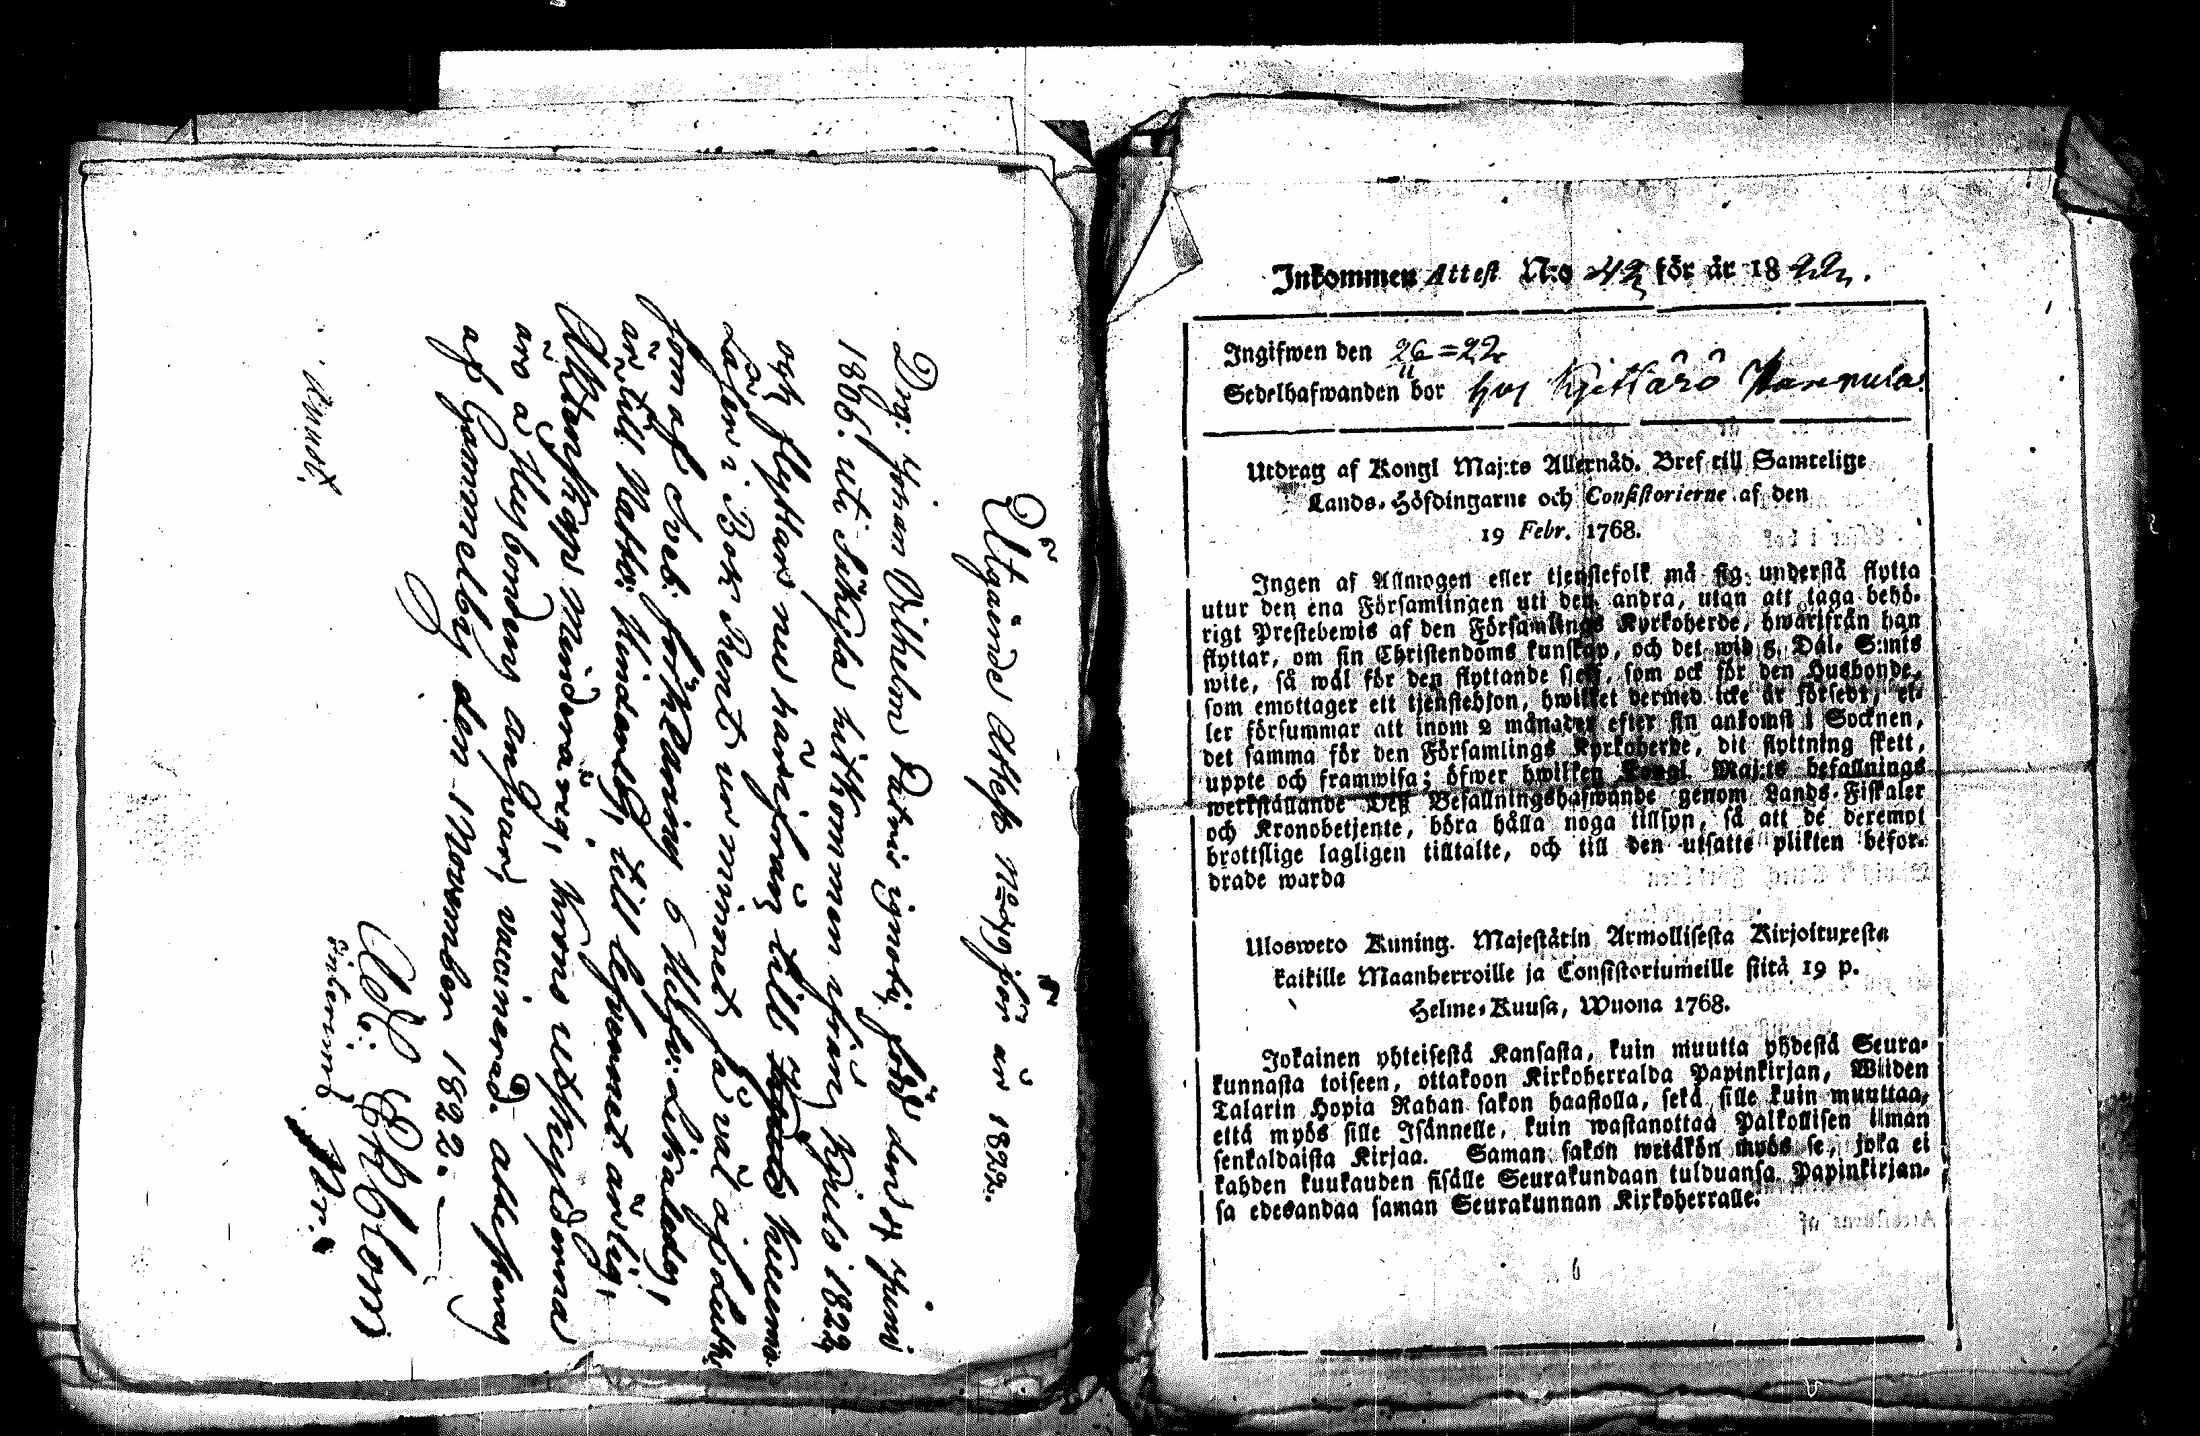 Utgående Attest N:o 49 för år 1822.
Drg: Johan Vilhelm Patris ignoti, född den 4 Junii
1806. uti Säkylä hitkommen ifrån Kjulo 1822
och flyttar nu härifrån till Kumo
Läser i Bok Rent ur minnet så väl af Luth:
som af Sveb. förklaring
är till Natto: kindarlig, till lefvernet ärlig,
Ächtenskaps Minderårig, krono utskylderna
äro å Husbondens ansvar, vaccinerad. attesteras
af Gammelby den 1 November 1822.
Ad: Ekblom
Inkommen Attest N:o 42 för år 1822.
Ingifwen den 26 = 22
Sedelhafwanden bor hos
Utdrag af Kongl Maj:ts Allernåd. Bref till Samtelige
Lands-Höfdingarne och Consistorierne af den
19 Febr. 1768.
Ingen af Allmogen eller tjenstefolk må sig understå flytta
utur den ena Församlingen uti den andra, utan att taga behö-
rigt Prestebewis af den Församlings Kyrkoherde, hwarifrån han
flyttar, om sin Christendoms kunskap, och det wid 5. Dal. S:mts
wite, så wäl för den flyttande sjelf, som ock för den Husbonde,
som emottager ett tjenstehjon, hwilket dermed icke är försedt, el-
ler försummar att inom 2 månader efter sin ankomst i Socknen,
det samma för den Församlings Kyrkoherde, dit flyttning skett,
uppte och framwisa; öfwer hwilken Kongl. Maj:ts befallnings
werkställande Deß Befallningshafwande genom Lands-Fiskaler
och Kronobetjente, böra hålla noga tillsyn, så att de deremot
brottslige lagligen tilltalte, och till den utsatte plikten befor-
drade warda
Ulosweto Kuning. Majestätin Armollisesta Kirjoituxesta
kaikille Maanherroille ja Consistoriumeille siitä 19 p.
Helme-Kuusa, Wuona 1768.
Jokainen yhteisestä Kansasta, kuin muutta yhdestä Seura-
kunnasta toiseen, ottakoon Kirkoherralda Papinkirjan, Wiiden
Talarin Hopia Rahan sakon haastolla, sekä sille kuin muuttaa,
että myös sille Isännelle, kuin wastanottaa Palkollisen ilman
senkaldaista Kirjaa. Saman sakon wetäkön myös se, joka ei
kahden kuukauden sisälle Seurakundaan tulduansa Papinkirjan-
sa edesandaa saman Seurakunnan Kirkoherralle.